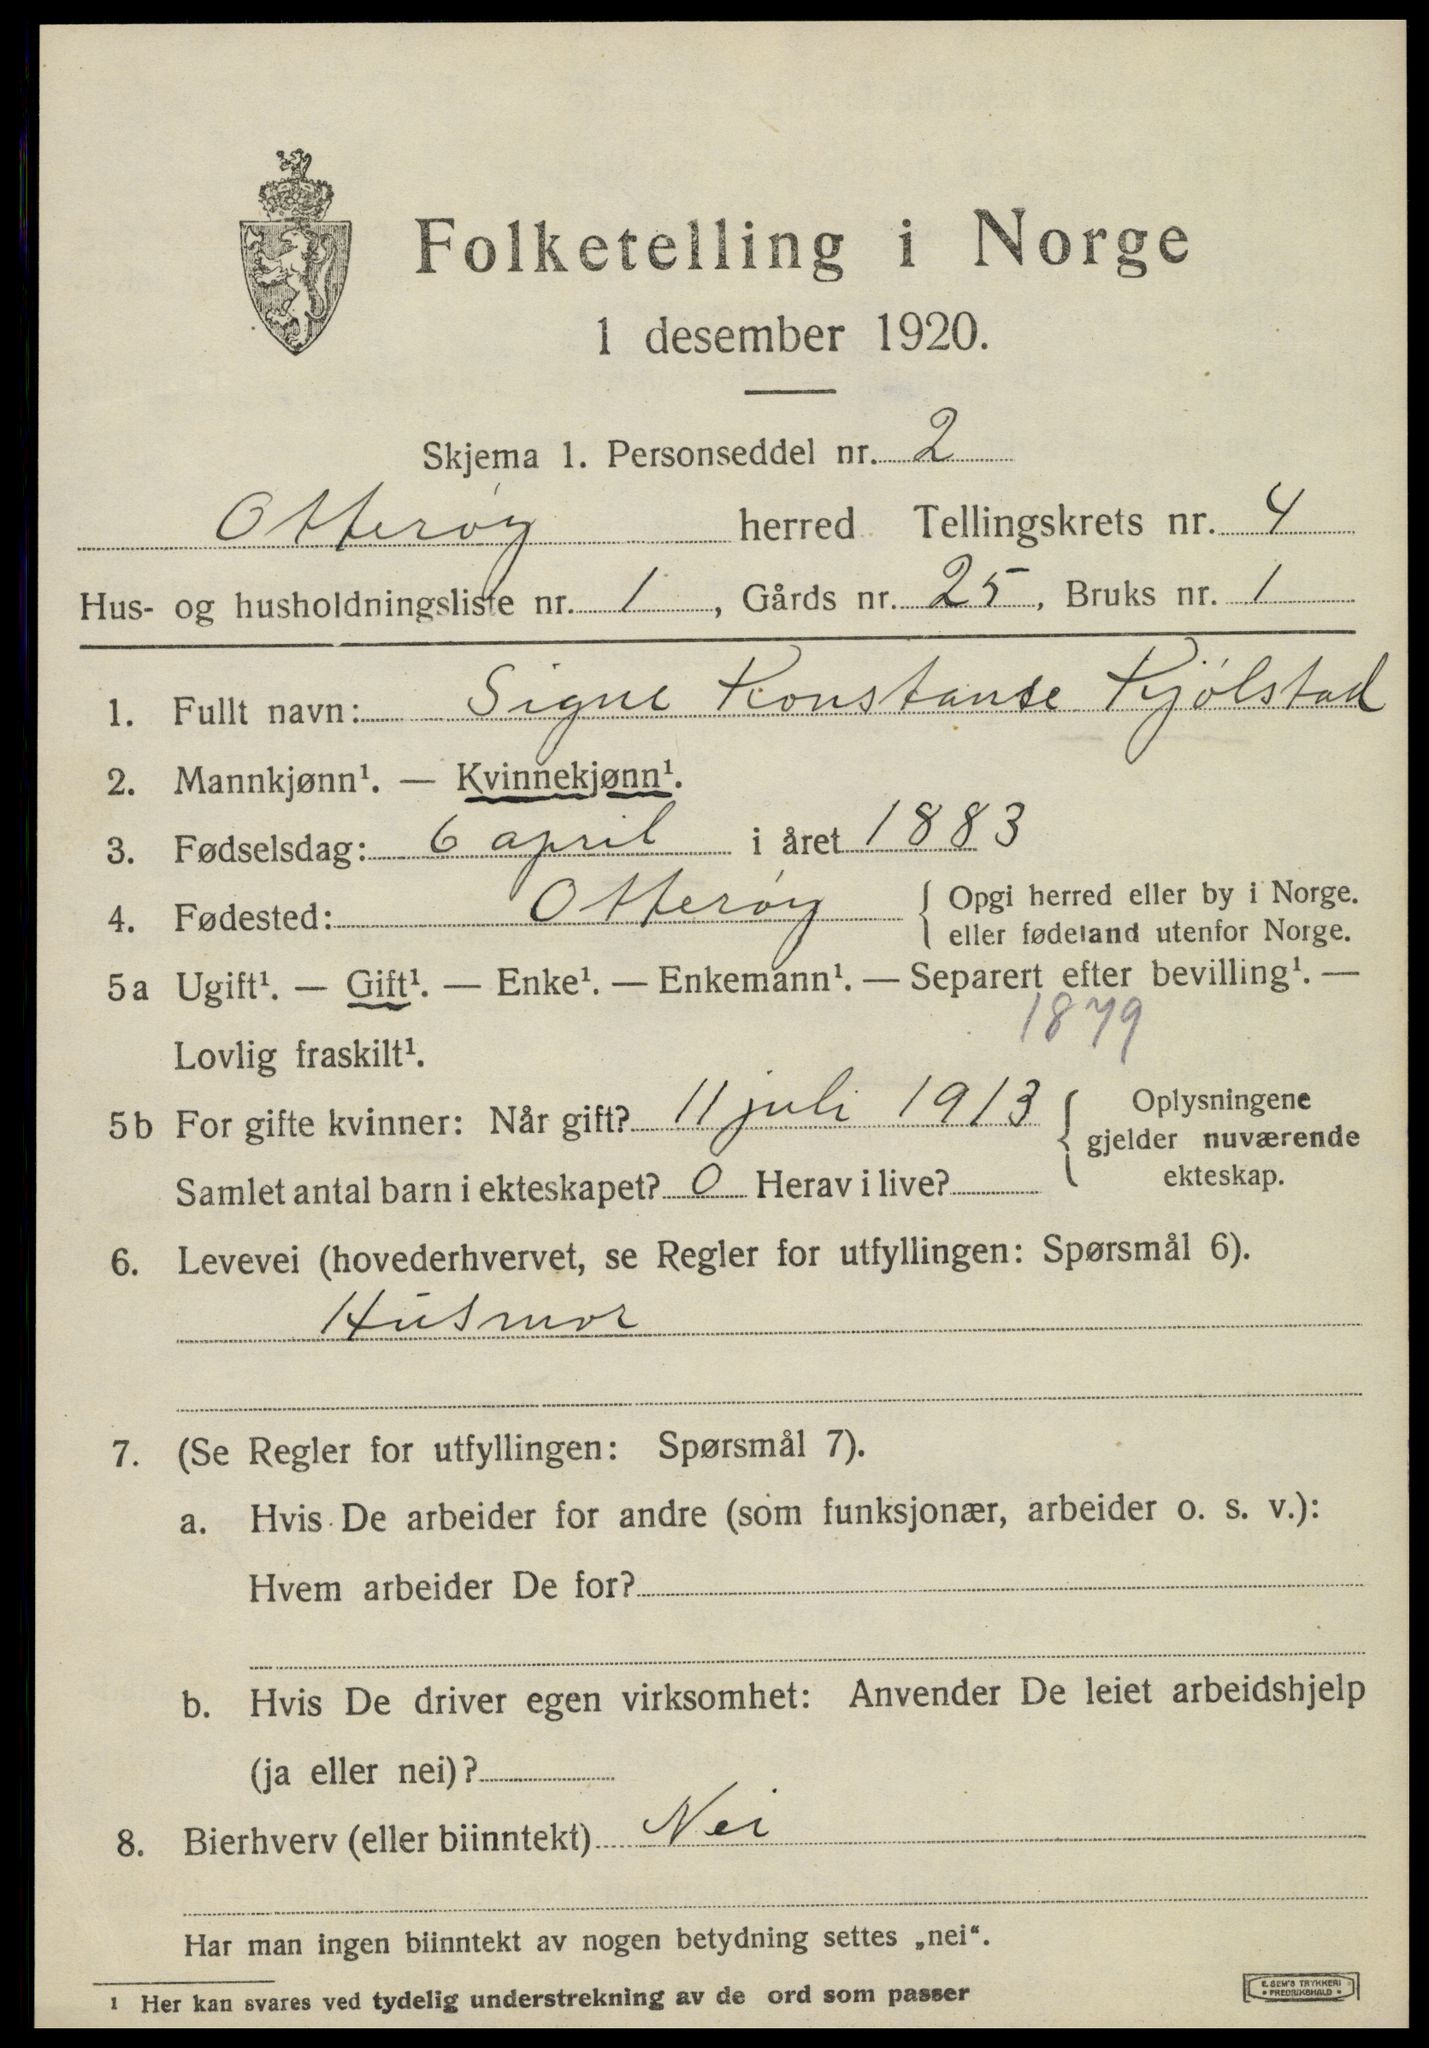 Folketelling i Norge
1 desember 1920.
Skjema 1. Personseddel nr. 2
Otterøy herred Tellingskrets nr. 4
Hus- og husholdningsliste nr. 1, Gårds nr. 25, Bruks nr. 1
1. Fullt navn: Signe Konstanse Kjølstad
2. Mannkjønn¹. — Kvinnekjønn¹.
3. Fødselsdag: 6 april i året 1883
4. Fødested: Otterøy { Opgi herred eller by i Norge.
eller fødeland utenfor Norge.
5a Ugift¹. — Gift¹. — Enke¹. — Enkemann¹. — Separert efter bevilling¹. —
1879
Lovlig fraskilt¹.
5b For gifte kvinner: Når gift? 11 juli 1913
Samlet antal barn i ekteskapet? 0 Herav i live?
{ Oplysningene
gjelder nuværende
ekteskap.
6. Levevei (hovederhvervet, se Regler for utfyllingen: Spørsmål 6).
Husmor
7. (Se Regler for utfyllingen: Spørsmål 7).
a. Hvis De arbeider for andre (som funksjonær, arbeider o. s. v.):
Hvem arbeider De for?
b. Hvis De driver egen virksomhet: Anvender De leiet arbeidshjelp
(ja eller nei)?
8. Bierhverv (eller biinntekt) Nei
Har man ingen biinntekt av nogen betydning settes „nei“.
¹ Her kan svares ved tydelig understrekning av de ord som passer
E. SEM'S TRYKKERI
• FREDRIKSHALD •